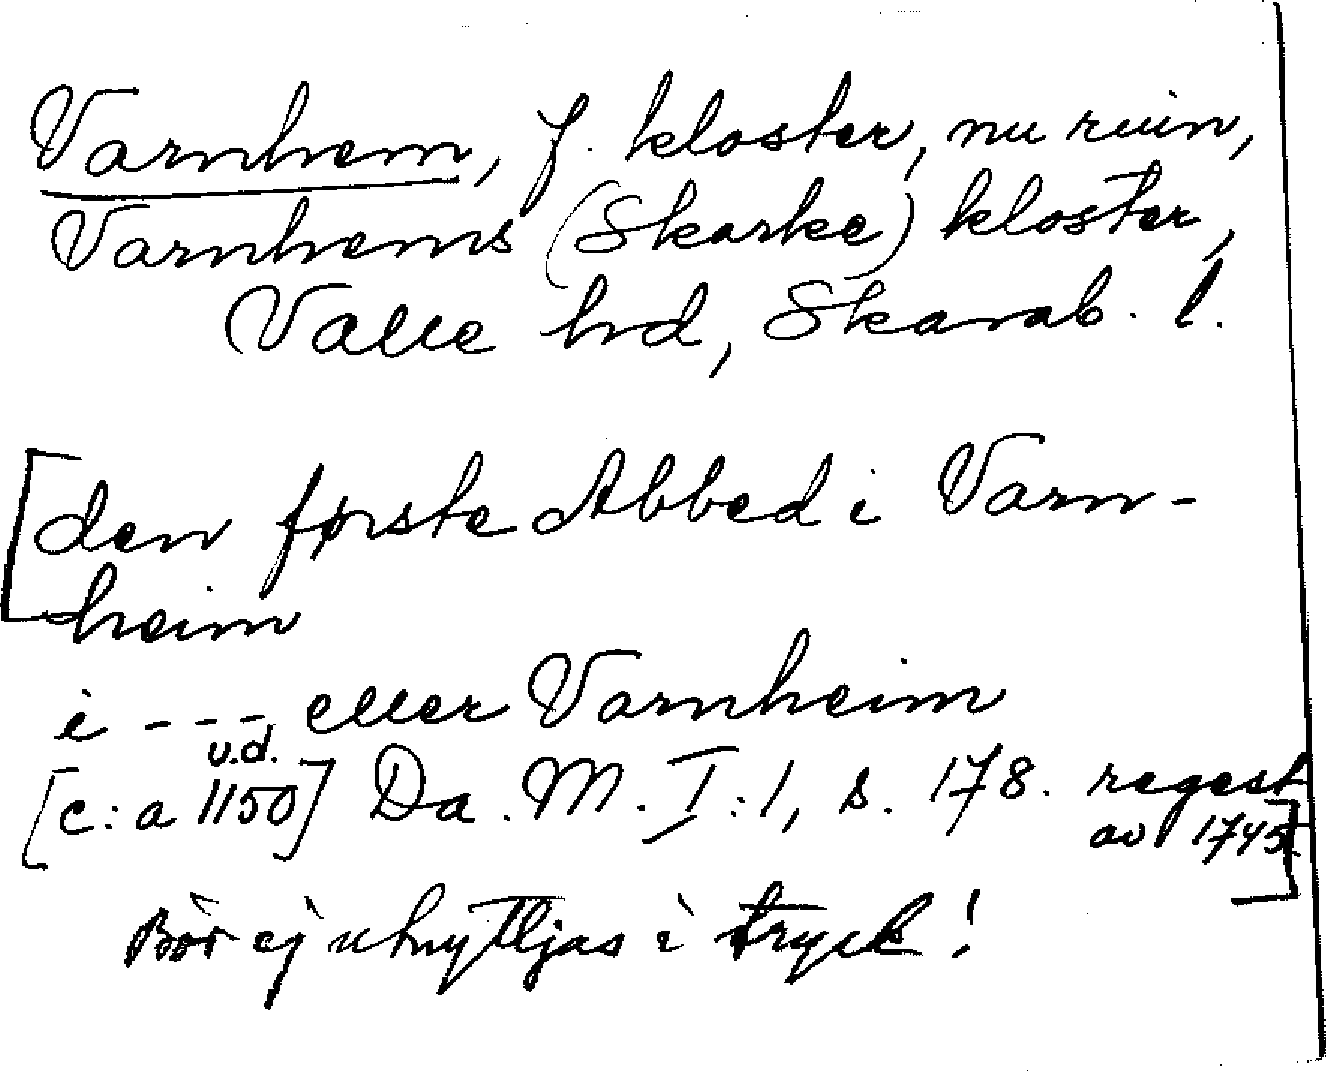 Varnhem, f. kloster, nu ruin,
Varnhems (Skarke) kloster,
Valle hd, Skarab. l.
[den første Abbed i Varn-
heim
i --- eller Varnheim
u.d.
[c:a 1150] Da. M. I:1, s. 178. regest
av 1745]
Bör ej utnyttjas i tryck!